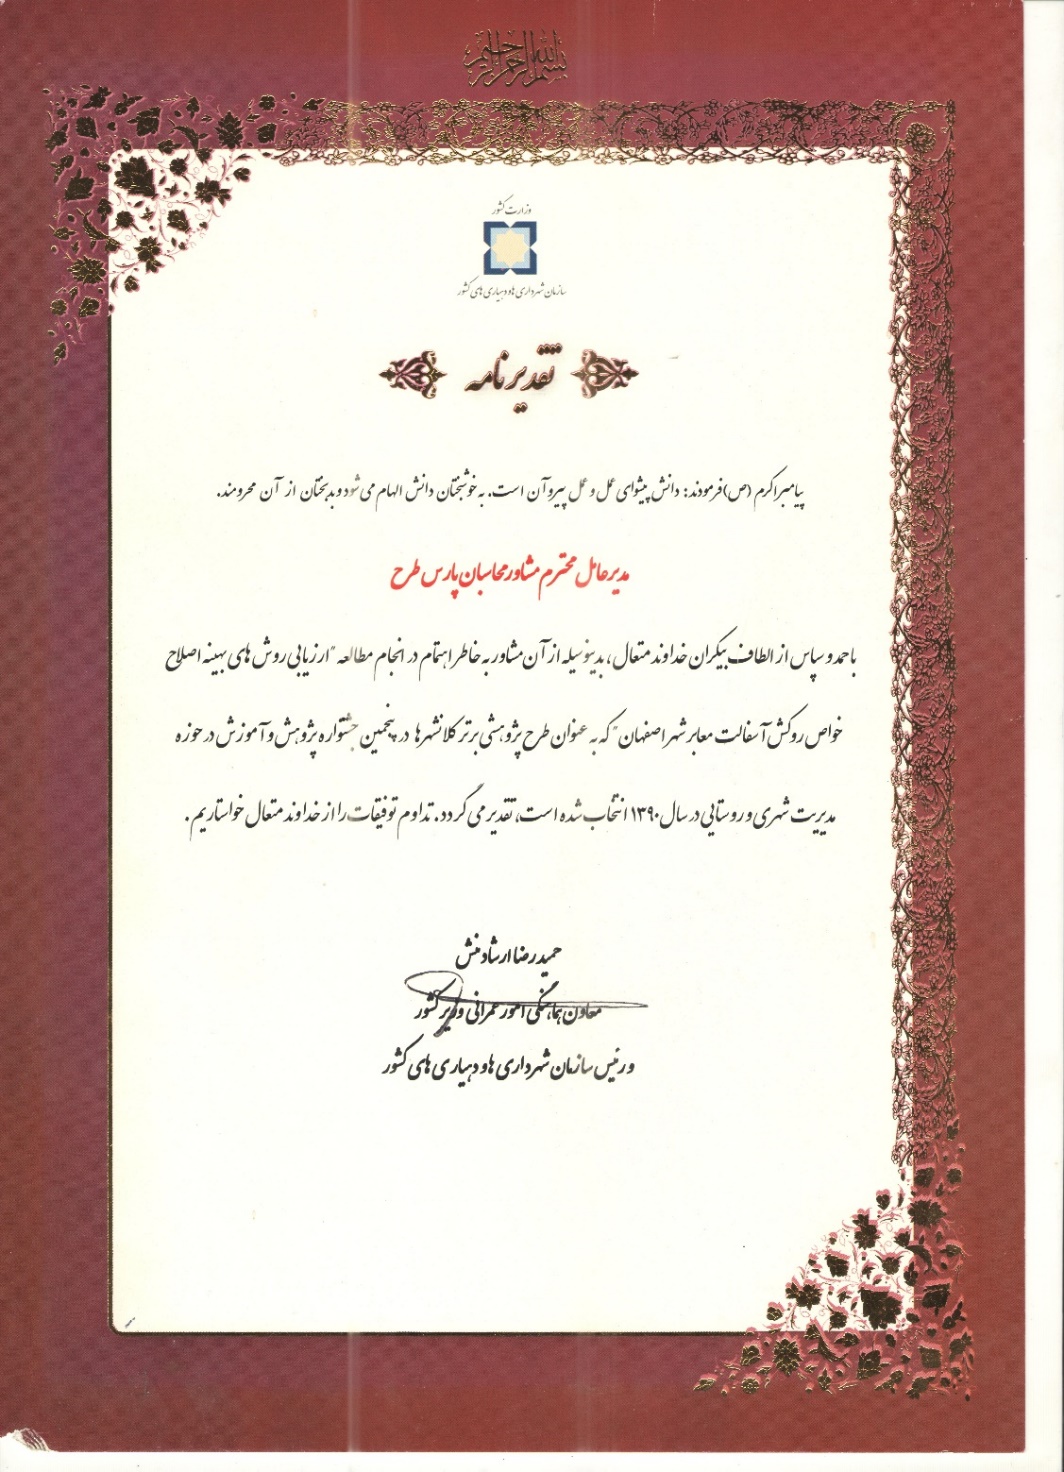 بسم الله الرحمن الرحیم
وزارت کشور
سازمان شهرداری ها و دهیاری های کشور
تقدیرنامه
پیامبر اکرم (ص) فرمودند: دانش پیشوای عمل و عمل پیرو آن است. به خوشبختان دانش الهام می شود و بدبختان از آن محرومند.
مدیرعامل محترم مشاور محاسبان پارس طرح
با حمد و سپاس از الطاف بیکران خداوند متعال، بدینوسیله از آن مشاور به خاطر اهتمام در انجام مطالعه "ارزیابی روش های بهینه اصلاح
خواص روکش آسفالت معابر شهر اصفهان" که به عنوان طرح پژوهشی برتر کلانشهرها در پنجمین جشنواره پژوهش و آموزش در حوزه
مدیریت شهری و روستایی در سال ۱۳۹۰ انتخاب شده است، تقدیر می گردد. تداوم توفیقات را از خداوند متعال خواستاریم.
حمیدرضا ارشادمنش
معاون هماهنگی امور عمرانی وزیر کشور
و رئیس سازمان شهرداری ها و دهیاری های کشور